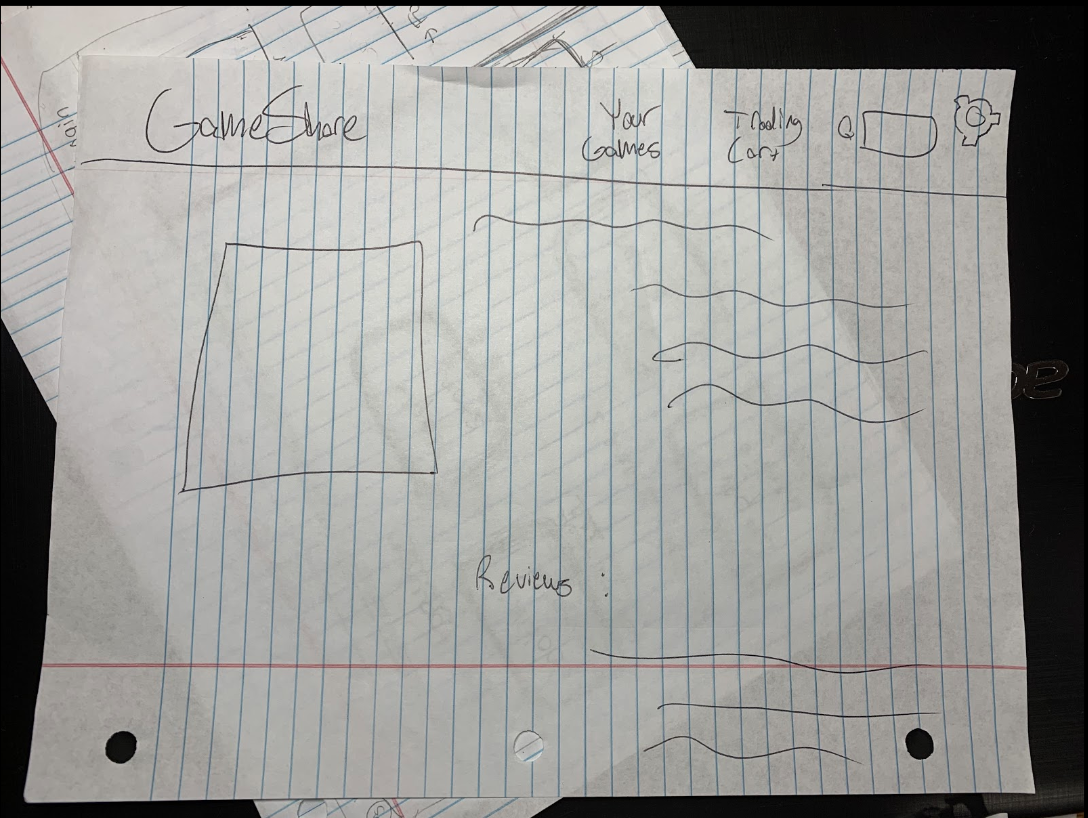 GameShare
Your
Games
Trading
Cart
Reviews :
Main